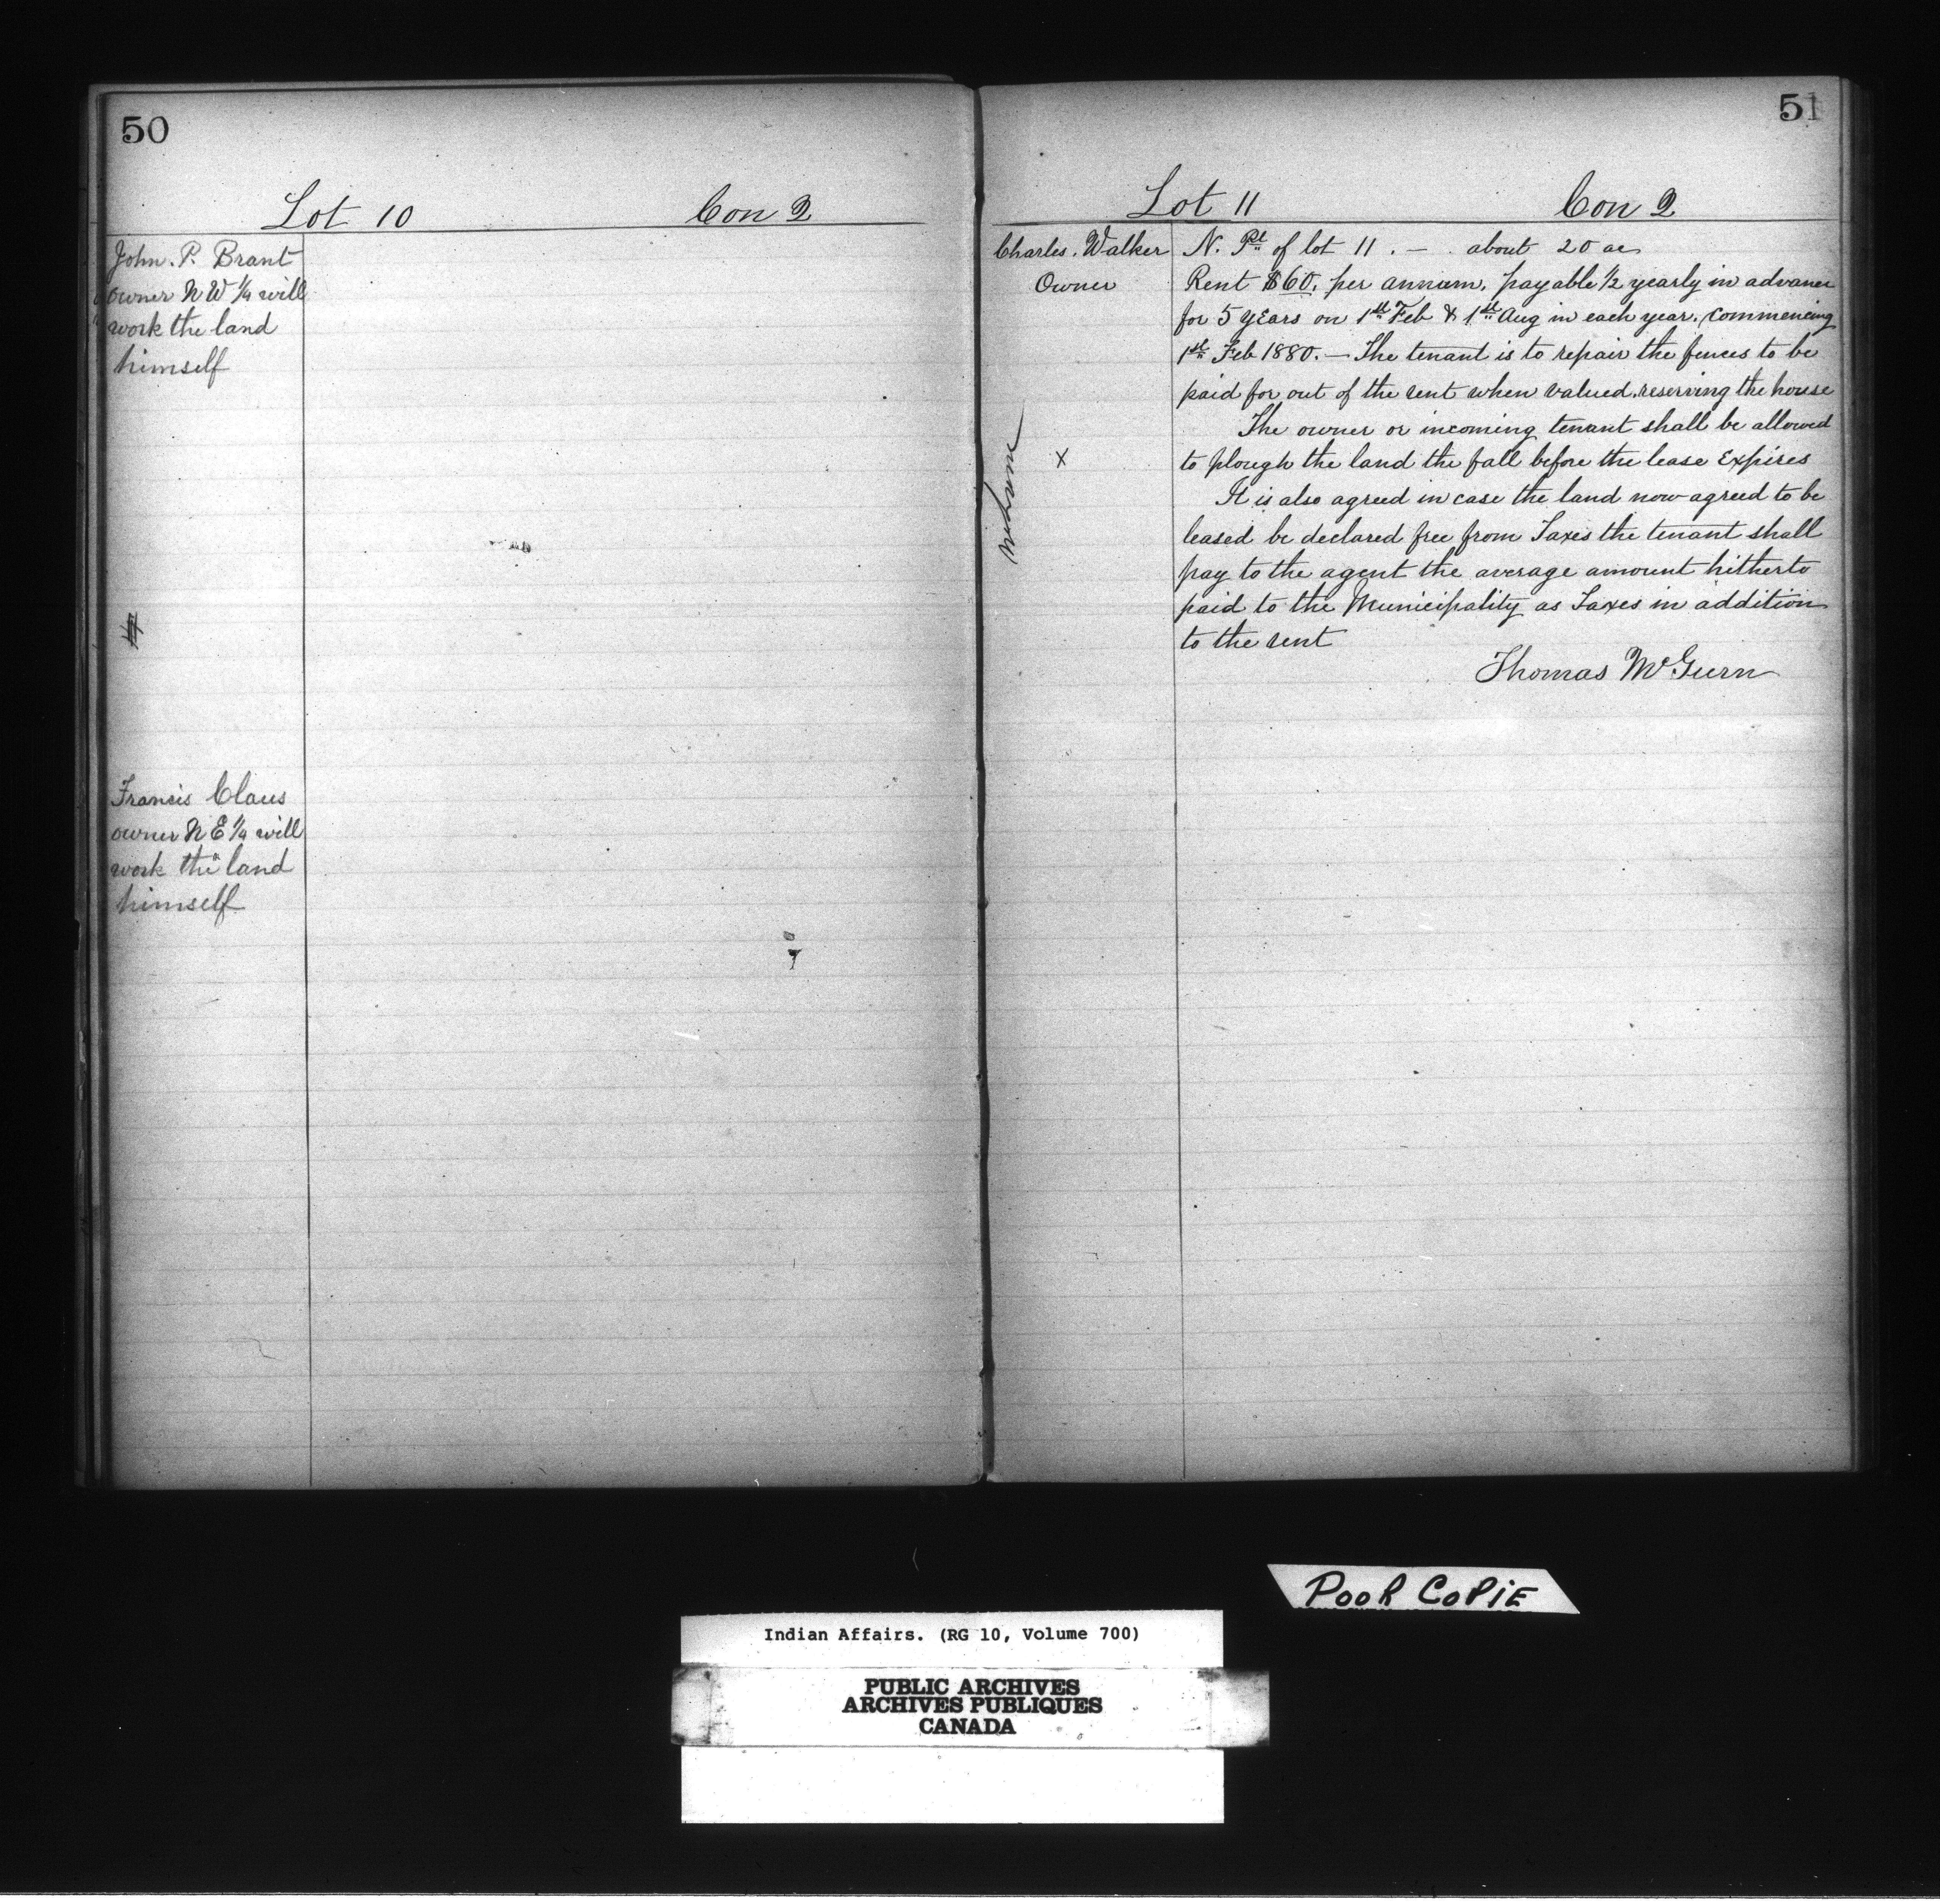 50
Lot 10 Con 2
John. P. Brant
owner N W 1/4 will
work the land
himself
Francis Claus
owner N E 1/4 will
work the land
himself
51
Lot 11 Con 2
Charles. Walker
Owner
x
N. Pt of lot 11. — about 20 ac
Rent $60. per annum, payable 1/2 yearly in advance
for 5 years on 1st Feb & 1st Aug in each year. Commencing
1st Feb 1880. — The tenant is to repair the fences to be
paid for out of the rent when valued. reserving the house
The owner or incoming tenant shall be allowed
to plough the land the fall before the lease Expires
It is also agreed in case the land now agreed to be
leased be declared free from Taxes the tenant shall
pay to the agent the average amount hitherto
paid to the Municipality as Taxes in addition
to the rent
Thomas McGurn
POOR COPIE
Indian Affairs. (RG 10, Volume 700)
PUBLIC ARCHIVES
ARCHIVES PUBLIQUES
CANADA